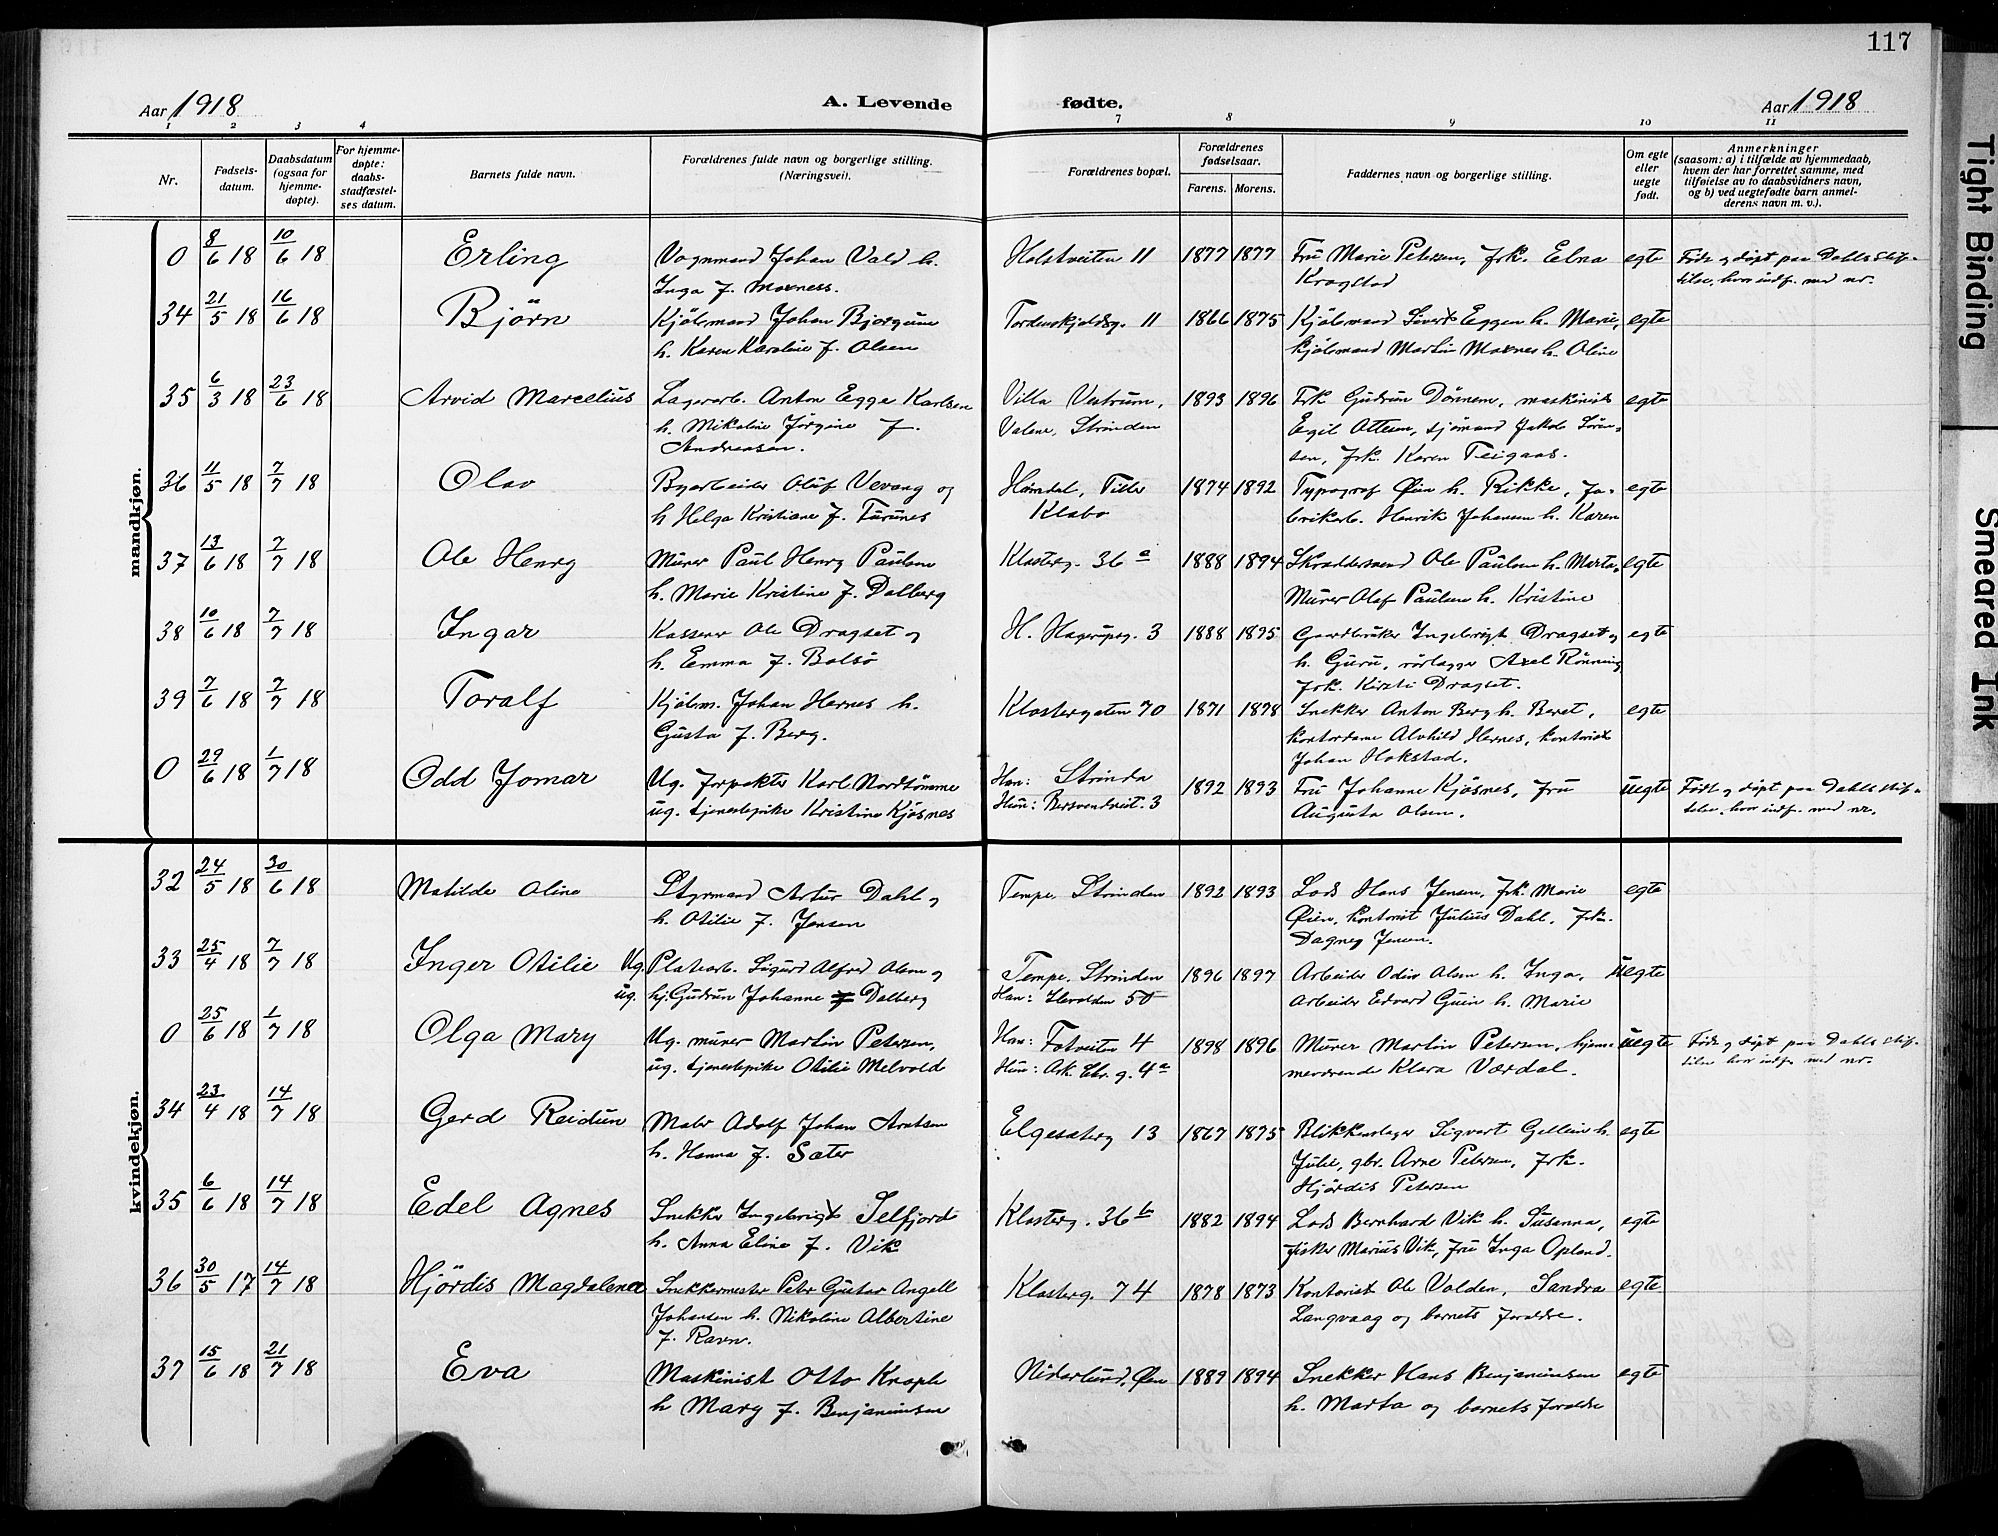 117
Aar 1918
A. Levende fødte.
Aar 1918
1 2 3 4 7 8 9 10 11
Nr.
Fødsels-
datum.
Daabsdatum
(ogsaa for
hjemme-
døpte).
For hjemme-
døpte:
daabs-
stadfæstel-
ses datum.
Barnets fulde navn.
Forældrenes fulde navn og borgerlige stilling.
(Næringsvei).
Forældrenes bopæl.
Forældrenes
fødselsaar.
Farens. Morens.
Faddernes navn og borgerlige stilling.
Om egte
eller
uegte
født.
Anmerkninger
(saasom: a) i tilfælde av hjemmedaab,
hvem der har forrettet samme, med
tilføielse av to daabsvidners navn,
og b) ved uegtefødte barn anmel-
derens navn m. v.).
mandkjøn.
0 8/6 18 10/6 18 Erling Vognmand Johan Vald h. Holstveiten 11 1877 1877 Fru Marie Petersen, frk. Elna egte Født og døpt paa Dahls Stif-
Inga f. Moxness. Krogstad telse, hvor indf. med nr.
34 21/5 18 16/6 18 Björn Kjölsmand Johan Bjorgum Tordenskjoldsg. 11 1866 1875 Kjölsmand Sivert Eggen h. Marie, egte
h. Karen Karoline f. Olsen kjölsmand Martin Moxnes h. Oline
35 6/3 18 23/6 18 Arvid Marcelius Lagerarb. Anton Egge Karlsen Villa Vestrum, 1893 1896 Frk Gudrun Dønnem, maskinist egte
h. Mikaline Jörgine f. Valene, Strinden Egil Ottesen, sjömand Jakob Sören-
Andreasen. sen, frk. Karen Teigaas.
36 11/5 18 7/7 18 Olav Byarbeider Oluf Vevang og Hamdal, Tiller 1874 1892 Typograf Øien h. Rikke, fa- egte
h Helga Kristiane f. Turunes Klæbo brikarb. Henrik Johansen h. Karen
37 13/6 18 7/7 18 Ole Henry Murer Paul Henry Paulsen Klosterg. 36 a 1888 1894 Skræddersvend Ole Paulsen h. Marta, egte
h. Marie Kristine f. Dalberg Murer Olaf Paulsen h. Kristine
38 10/6 18 7/7 18 Ingar Kasserer Ole Dragset og H. Hagerupsg. 3 1888 1895 Gaardbruker Ingebrigt Dragset og egte
h. Emma f. Bolsö h. Guru, rörlægger Axel Rönning
frk. Kirsti Dragset.
39 7/6 18 7/7 18 Toralf Kjölsm. Johan Hernes h. Klostergaten 70 1871 1878 Snekker Anton Berg h. Beret, egte
Gusta f. Berg. kontordame Alvhild Hernes, kontorist
Johan Hokstad.
0 29/6 18 1/7 18 Odd Jomar Ug. forpakter Karl Nordtömme Han: Strinda 1892 1893 Fru Johanne Kjösnes, fru uegte Født og døpt paa Dahls stif-
ug. tjenestepike Kristine Kjösnes Hun: Bersvendveit. 3 Augusta Olsen. telse, hvor indf. med nr.
kvindekjøn.
32 24/5 18 30/6 18 Matilde Oline Styrmand Artur Dahl og Tempe, Strinden 1892 1893 Lods Hans Jensen, frk. Marie egte
h. Otilie f. Jensen Øien, kontorist Julius Dahl, frk.
Dagney Jensen.
33 25/4 18 7/7 18 Inger Otilie Ug. Platearb. Sigurd Alfred Olsen og Tempe, Strinden 1896 1897 Arbeider Odin Olsen h. Inga, uegte
ug. hj. Gudrun Johanne f Dalberg Han: Ilevolden 50 Arbeider Edvard Guin h. Marie
0 25/6 18 1/7 18 Olga Mary Ug. murer Martin Petersen, Han: Fotveiten 4 1898 1896 Murer Martin Petersen, hjemme- uegte Født og döpt paa Dahls stif-
ug. tjenestepike Otilie Melvold Hun: Ark. Chr. g. 4 a værende Klara Værdal. telse hvor indf. med nr.
34 23/4 18 14/7 18 Gerd Reidun Maler Adolf Johan Arntsen Elgesæterg 13 1867 1875 Blikkenslager Sigvart Gellein h. egte
h. Hanna f. Sæter Julie, gbr. Arne Petersen, frk.
Hjördis Petersen
35 6/6 18 14/7 18 Edel Agnes Snekker Ingebrigt Selfjord Klosterg. 36 b 1882 1894 Lods Bernhard Vik h. Susanna, egte
h. Anna Eline f. Vik fisker Marius Vik, fru Inga Opland.
36 30/5 17 14/7 18 Hjördis Magdalena Snekkermester Peter Gustav Angell Klosterg. 74 1878 1873 Kontorist Ole Volden, Sandra egte
Johansen h. Nikoline Albertine Langvaag og barnets forældre.
f. Ravn.
37 15/6 18 21/7 18 Eva Maskinist Otto Kroph Niderlund, Øen 1889 1894 Snekker Hans Benjaminsen egte
h Mary f. Benjaminsen h. Marta og barnets forældre
Tight Binding
Smeared Ink